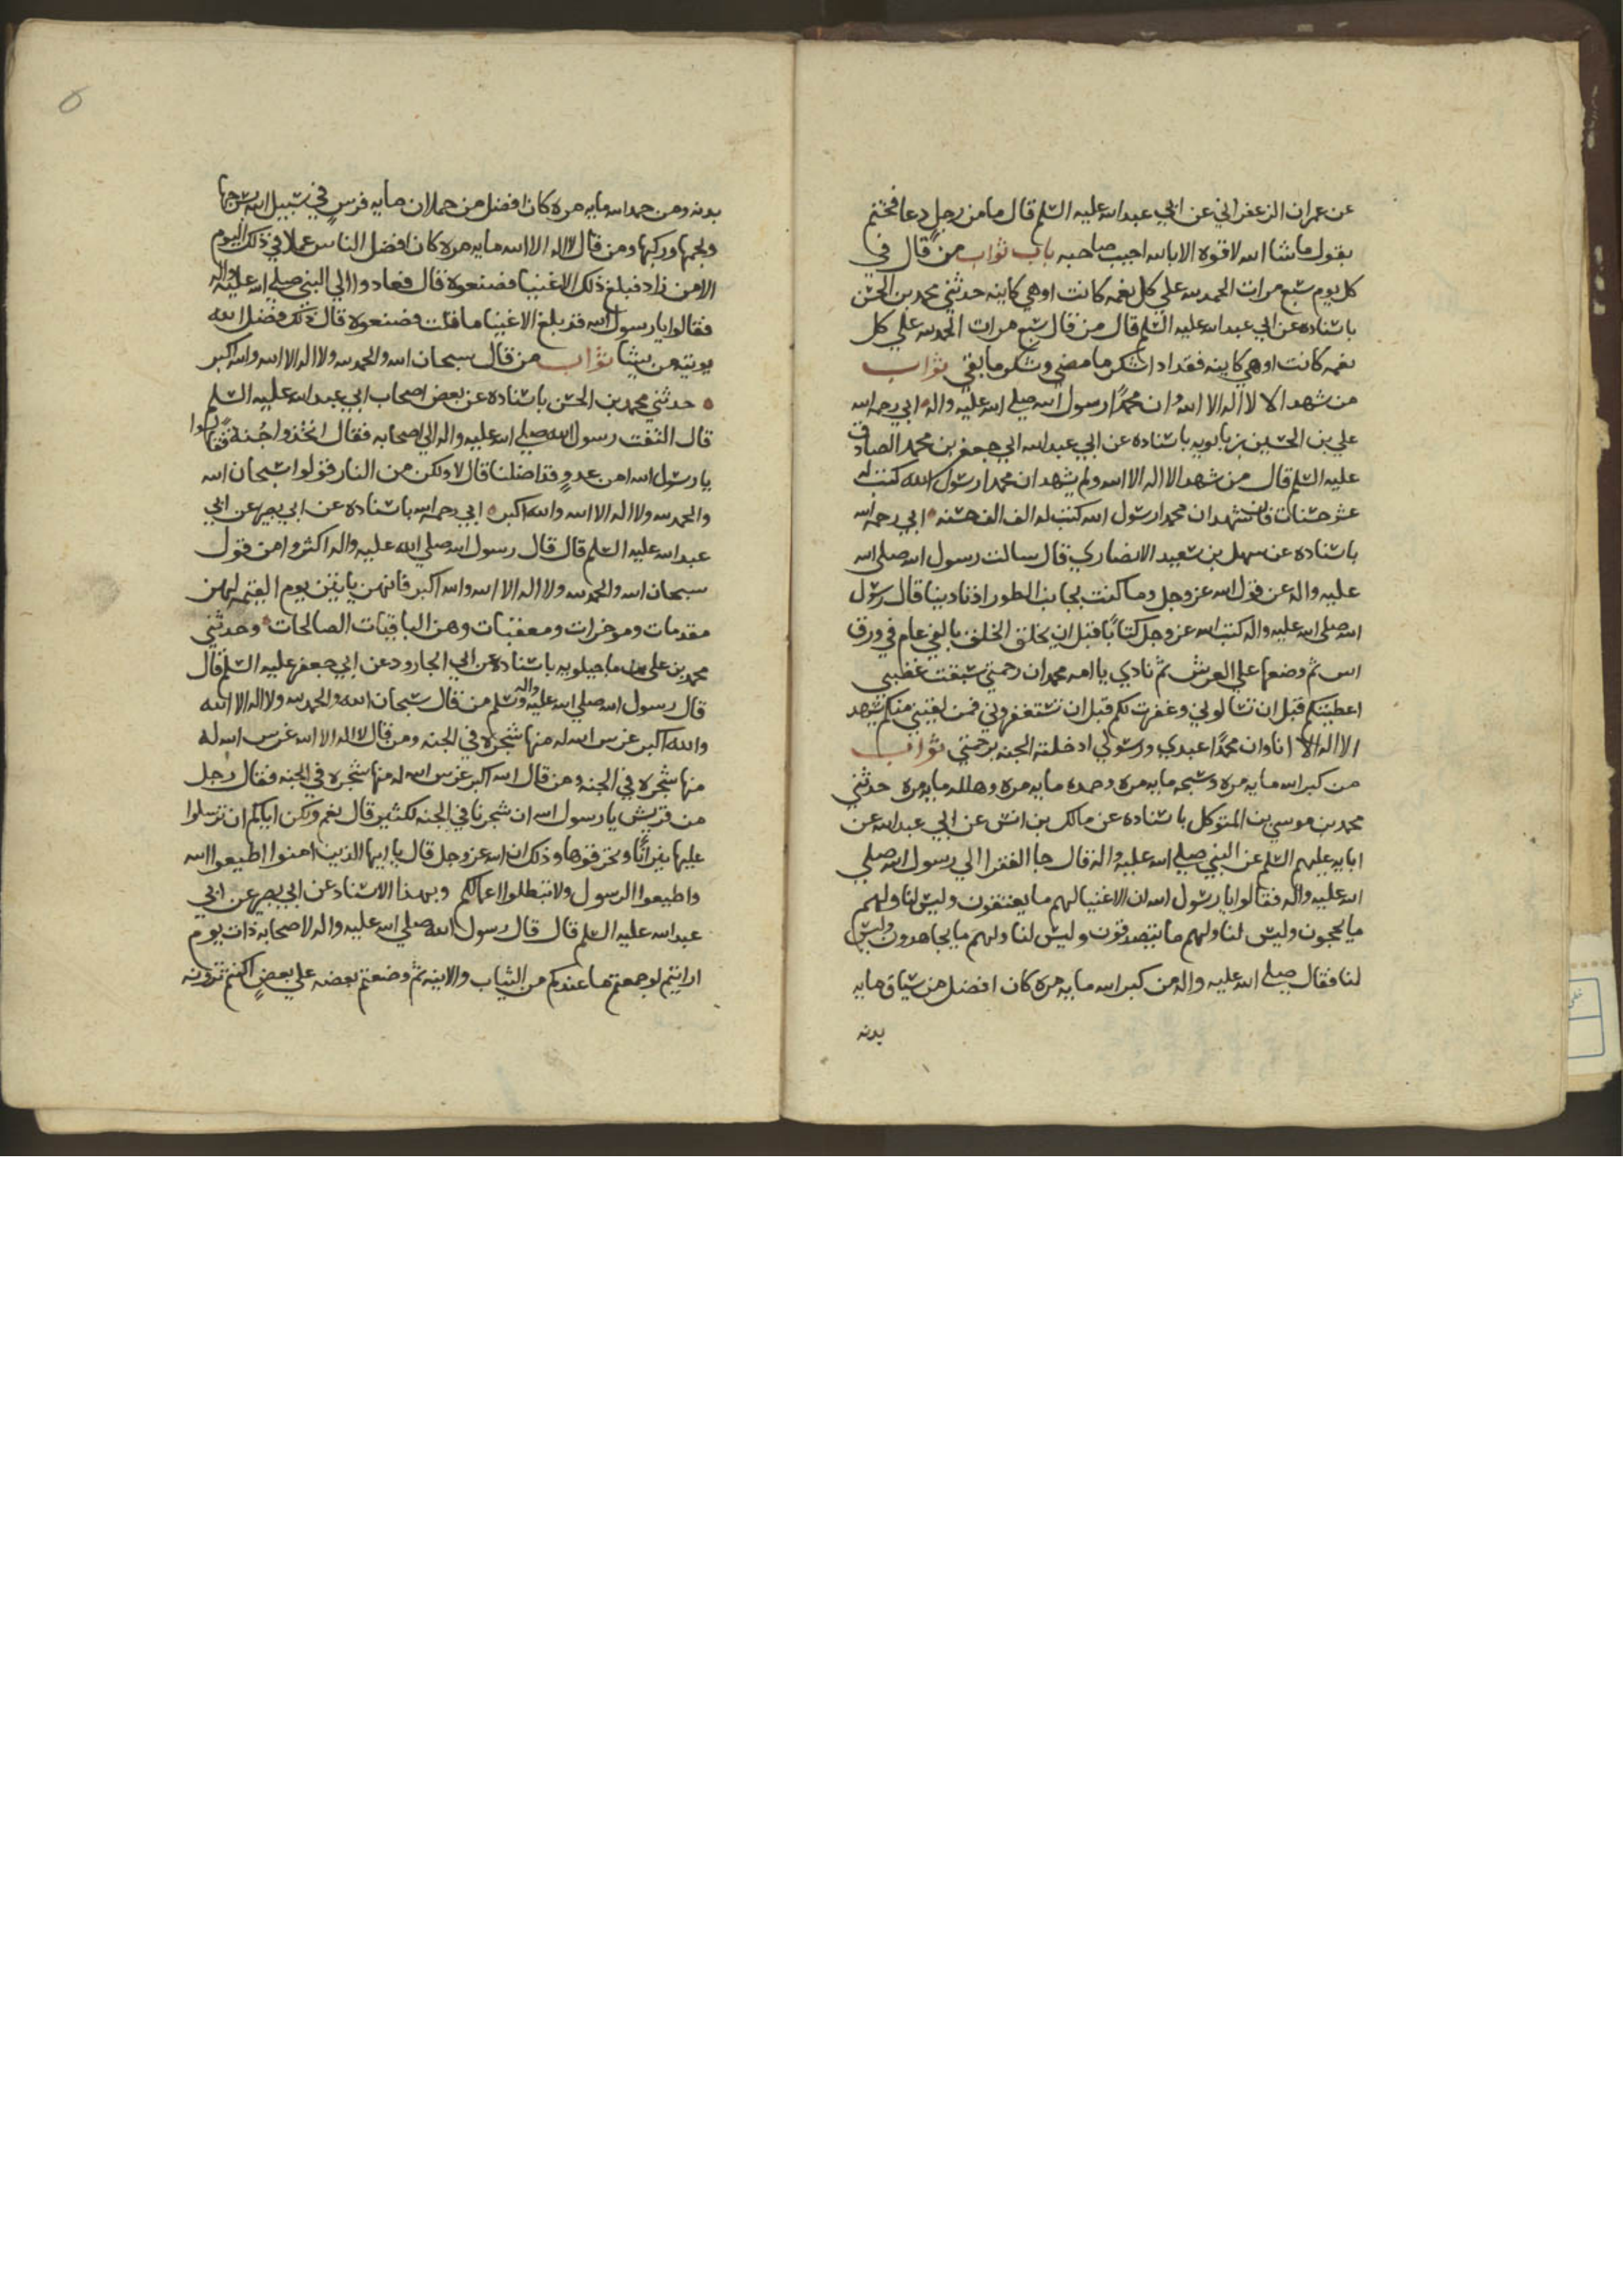 عن عمران الزعفراني عن ابي عبدالله عليه السلم قال ما من رجل دعا فختم
بقول ما شا الله لا قوة الا بالله اجيب صاحبه باب ثواب من قال في
كل يوم سبع مرات الحمد لله علي كل نعمه كانت او هي كاينه حدثني محمد بن الحسن
باسناده عن ابي عبدالله عليه السلم قال من قال سبع مرات الحمد لله علي كل
نعمه كانت او هي كاينه فقد ادا شكر ما مضي وشكر ما بقي ثواب
من شهد الا لا اله الا الله وان محمدًا رسول الله صلي الله عليه واله ابي رحمه الله
علي بن الحسين بن بابويه باسناده عن ابي عبدالله ابي جعفر بن محمد الصادق
عليه السلم قال من شهد الا اله الا الله ولم يشهد ان محمدا رسول الله كتب له
عشر حسنات فان شهد ان محمدا رسول الله كتب له الف الف حسنه ابي رحمه الله
باسناده عن سهل بن سعيد الانصاري قال سالت رسول الله صلي الله
عليه واله عن قول الله عز وجل وما كنت بجانب الطور اذ نادينا قال رسول
الله صلي الله عليه واله كتب الله عز وجل كتابًا قبل ان يخلق الخلق بالفي عام في ورق
اس ثم وضعها علي العرش ثم نادي يا امه محمد ان رحمتي سبقت غضبي
اعطيتكم قبل ان تسالوني وغفرت لكم قبل ان تستغفروني فمن لقيني منكم يشهد
الا اله الا انا وان محمدًا عبدي ورسولي ادخلته الجنه برحمتي ثواب
من كبر الله مايه مره وسبحه مايه مره وحمده مايه مره وهلله مايه مره حدثني
محمد بن موسي بن المتوكل باسناده عن مالك بن انس عن ابي عبدالله عن
ابايه عليهم السلم عن النبي صلي الله عليه واله قال جا الفقرا الي رسول الله صلي
الله عليه واله فقالوا يا رسول الله ان الاغنيا لهم ما يعتقون وليس لنا ولهم
ما يحجون وليس لنا ولهم ما يتصدقون وليس لنا ولهم ما يجاهدون وليس
لنا فقال صلي الله عليه واله من كبر الله مايه مره كان افضل من سياق مايه
بدنه
بدنه ومن حمد الله مايه مره كان افضل من حملان مايه فرس في سبيل الله بسرجها
ولجمها وركبها ومن قال لا اله الا الله مايه مره كان افضل الناس عملا في ذلك اليوم
الا من زاد فبلغ ذلك الاغنيا فصنعوه قال فعادوا الي النبي صلي الله عليه واله
فقالوا يا رسول الله قد بلغ الاغنيا ما قلت فصنعوه قال ذلك فضل الله
يوتيه من يشا ثواب من قال سبحان الله والحمد لله ولا اله الا الله والله اكبر
حدثني محمد بن الحسن باسناده عن بعض اصحاب ابي عبدالله عليه السلم
قال التفت رسول الله صلي الله عليه واله الي اصحابه فقال اتخذوا جُنةً فقالوا
يا رسول الله امن عدوٍ قد اضلنا قال لا ولكن من النار قولوا سبحان الله
والحمد لله ولا اله الا الله والله اكبر ابي رحمه الله باسناده عن ابي بصير عن ابي
عبدالله عليه السلم قال قال رسول الله صلي الله عليه واله اكثروا من قول
سبحان الله والحمد لله ولا اله الا الله والله اكبر فانهن ياتين يوم القيمه لهن
مقدمات وموخرات ومعقبات وهن الباقيات الصالحات وحدثني
محمد بن علي ماجيلويه باسناده عن ابي الجارود عن ابي جعفر عليه السلم قال
قال رسول الله صلي الله عليه واله وسلم من قال سبحان الله والحمد لله ولا اله الا الله
والله اكبر غرس الله له منها شجره في الجنه ومن قال لا اله الا الله غرس الله له
منها شجره في الجنه ومن قال الله اكبر غرس الله له منها شجره في الجنه فقال رجل
من قريش يا رسول الله ان شجرنا في الجنه لكثير قال نعم ولكن اياكم ان ترسلوا
عليها نيرانًا وتحرقوها وذلك ان الله عز وجل قال يا ايها الذين امنوا اطيعوا الله
واطيعوا الرسول ولا تبطلوا اعمالكم وبهذا الاسناد عن ابي بصير عن ابي
عبدالله عليه السلم قال قال رسول الله صلي الله عليه واله لاصحابه ذات يوم
ارايتم لو جمعتم ما عندكم من الثياب والانيه ثم وضعتم بعضه علي بعضٍ اكنتم ترونه